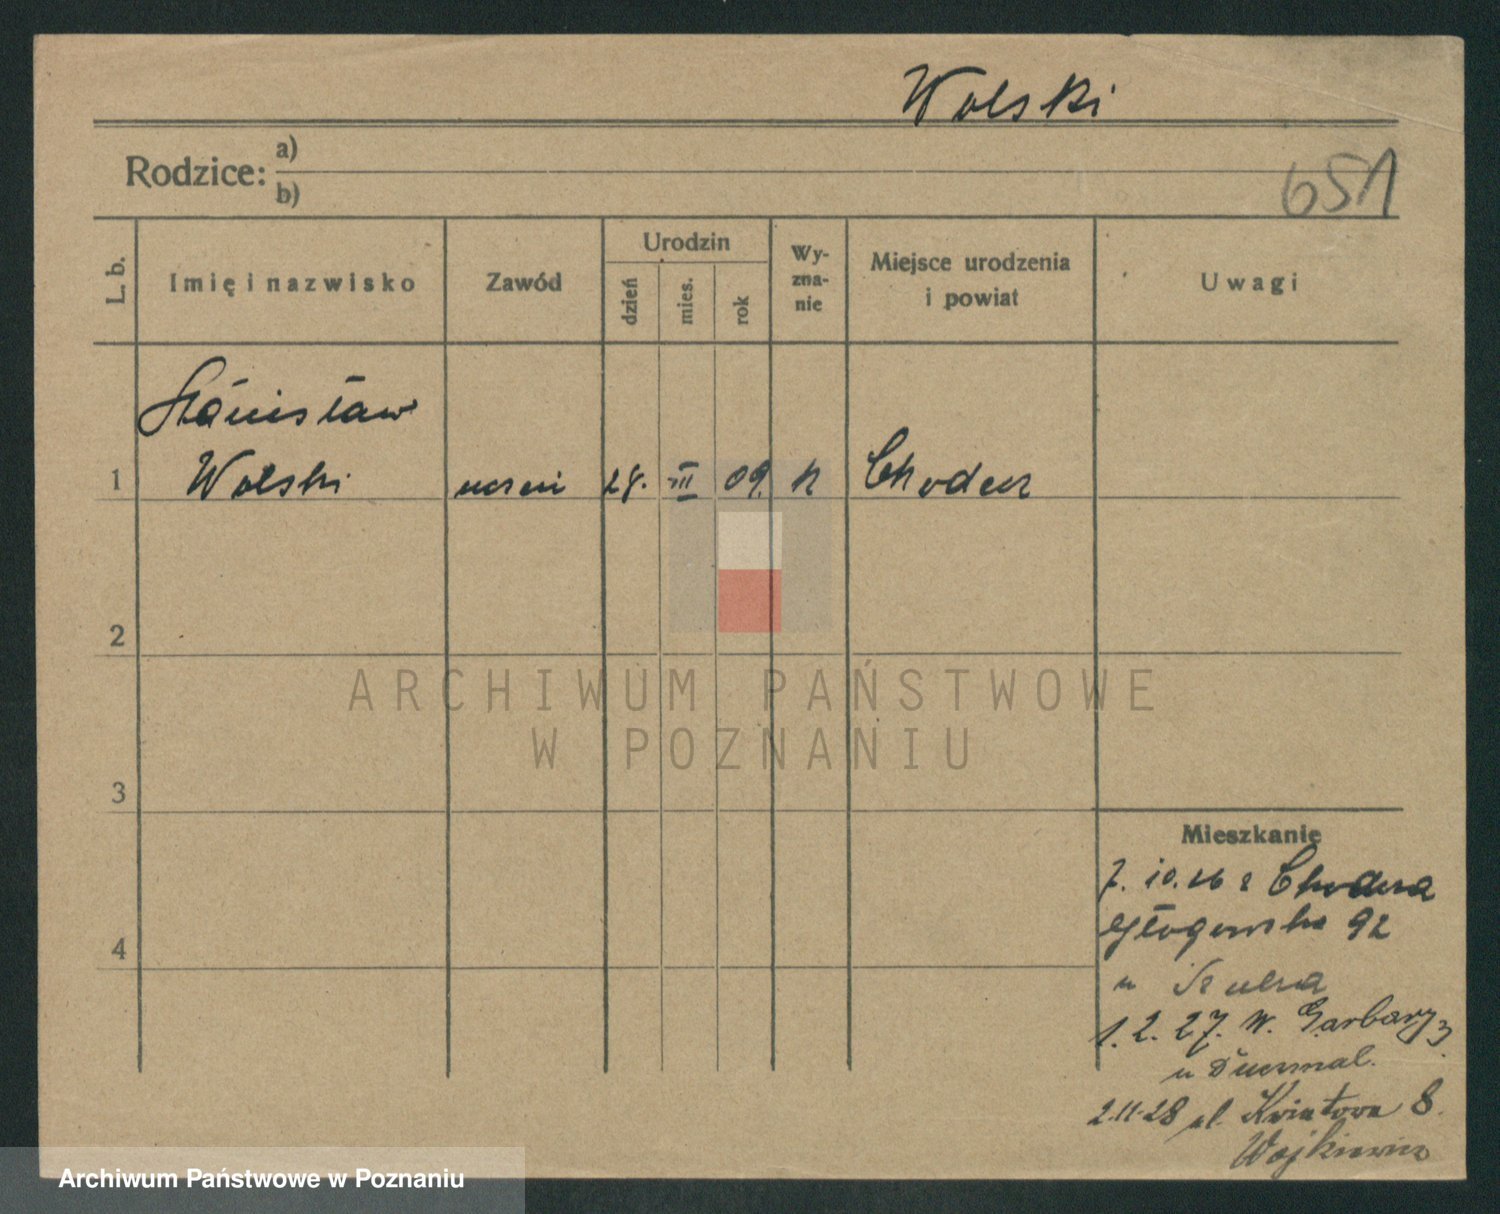 Wolski
Rodzice: a)
b)
651
L. b.
Imię i nazwisko
Zawód
Urodzin
dzień
mies.
rok
Wy-
zna-
nie
Miejsce urodzenia
i powiat
Uwagi
Stanisław
1 Wolski uczeń 28. III 09. k Chodecz
2
3
4
ARCHIWUM PAŃSTWOWE
W POZNANIU
Mieszkanie
7. 10. 26 z Chodcza
Głogowska 92
u Szulca
1. 2. 27. W. Garbary 3
u
2.11.28 ul. Kwiatowa 8.
Wojkiewicz
Archiwum Państwowe w Poznaniu